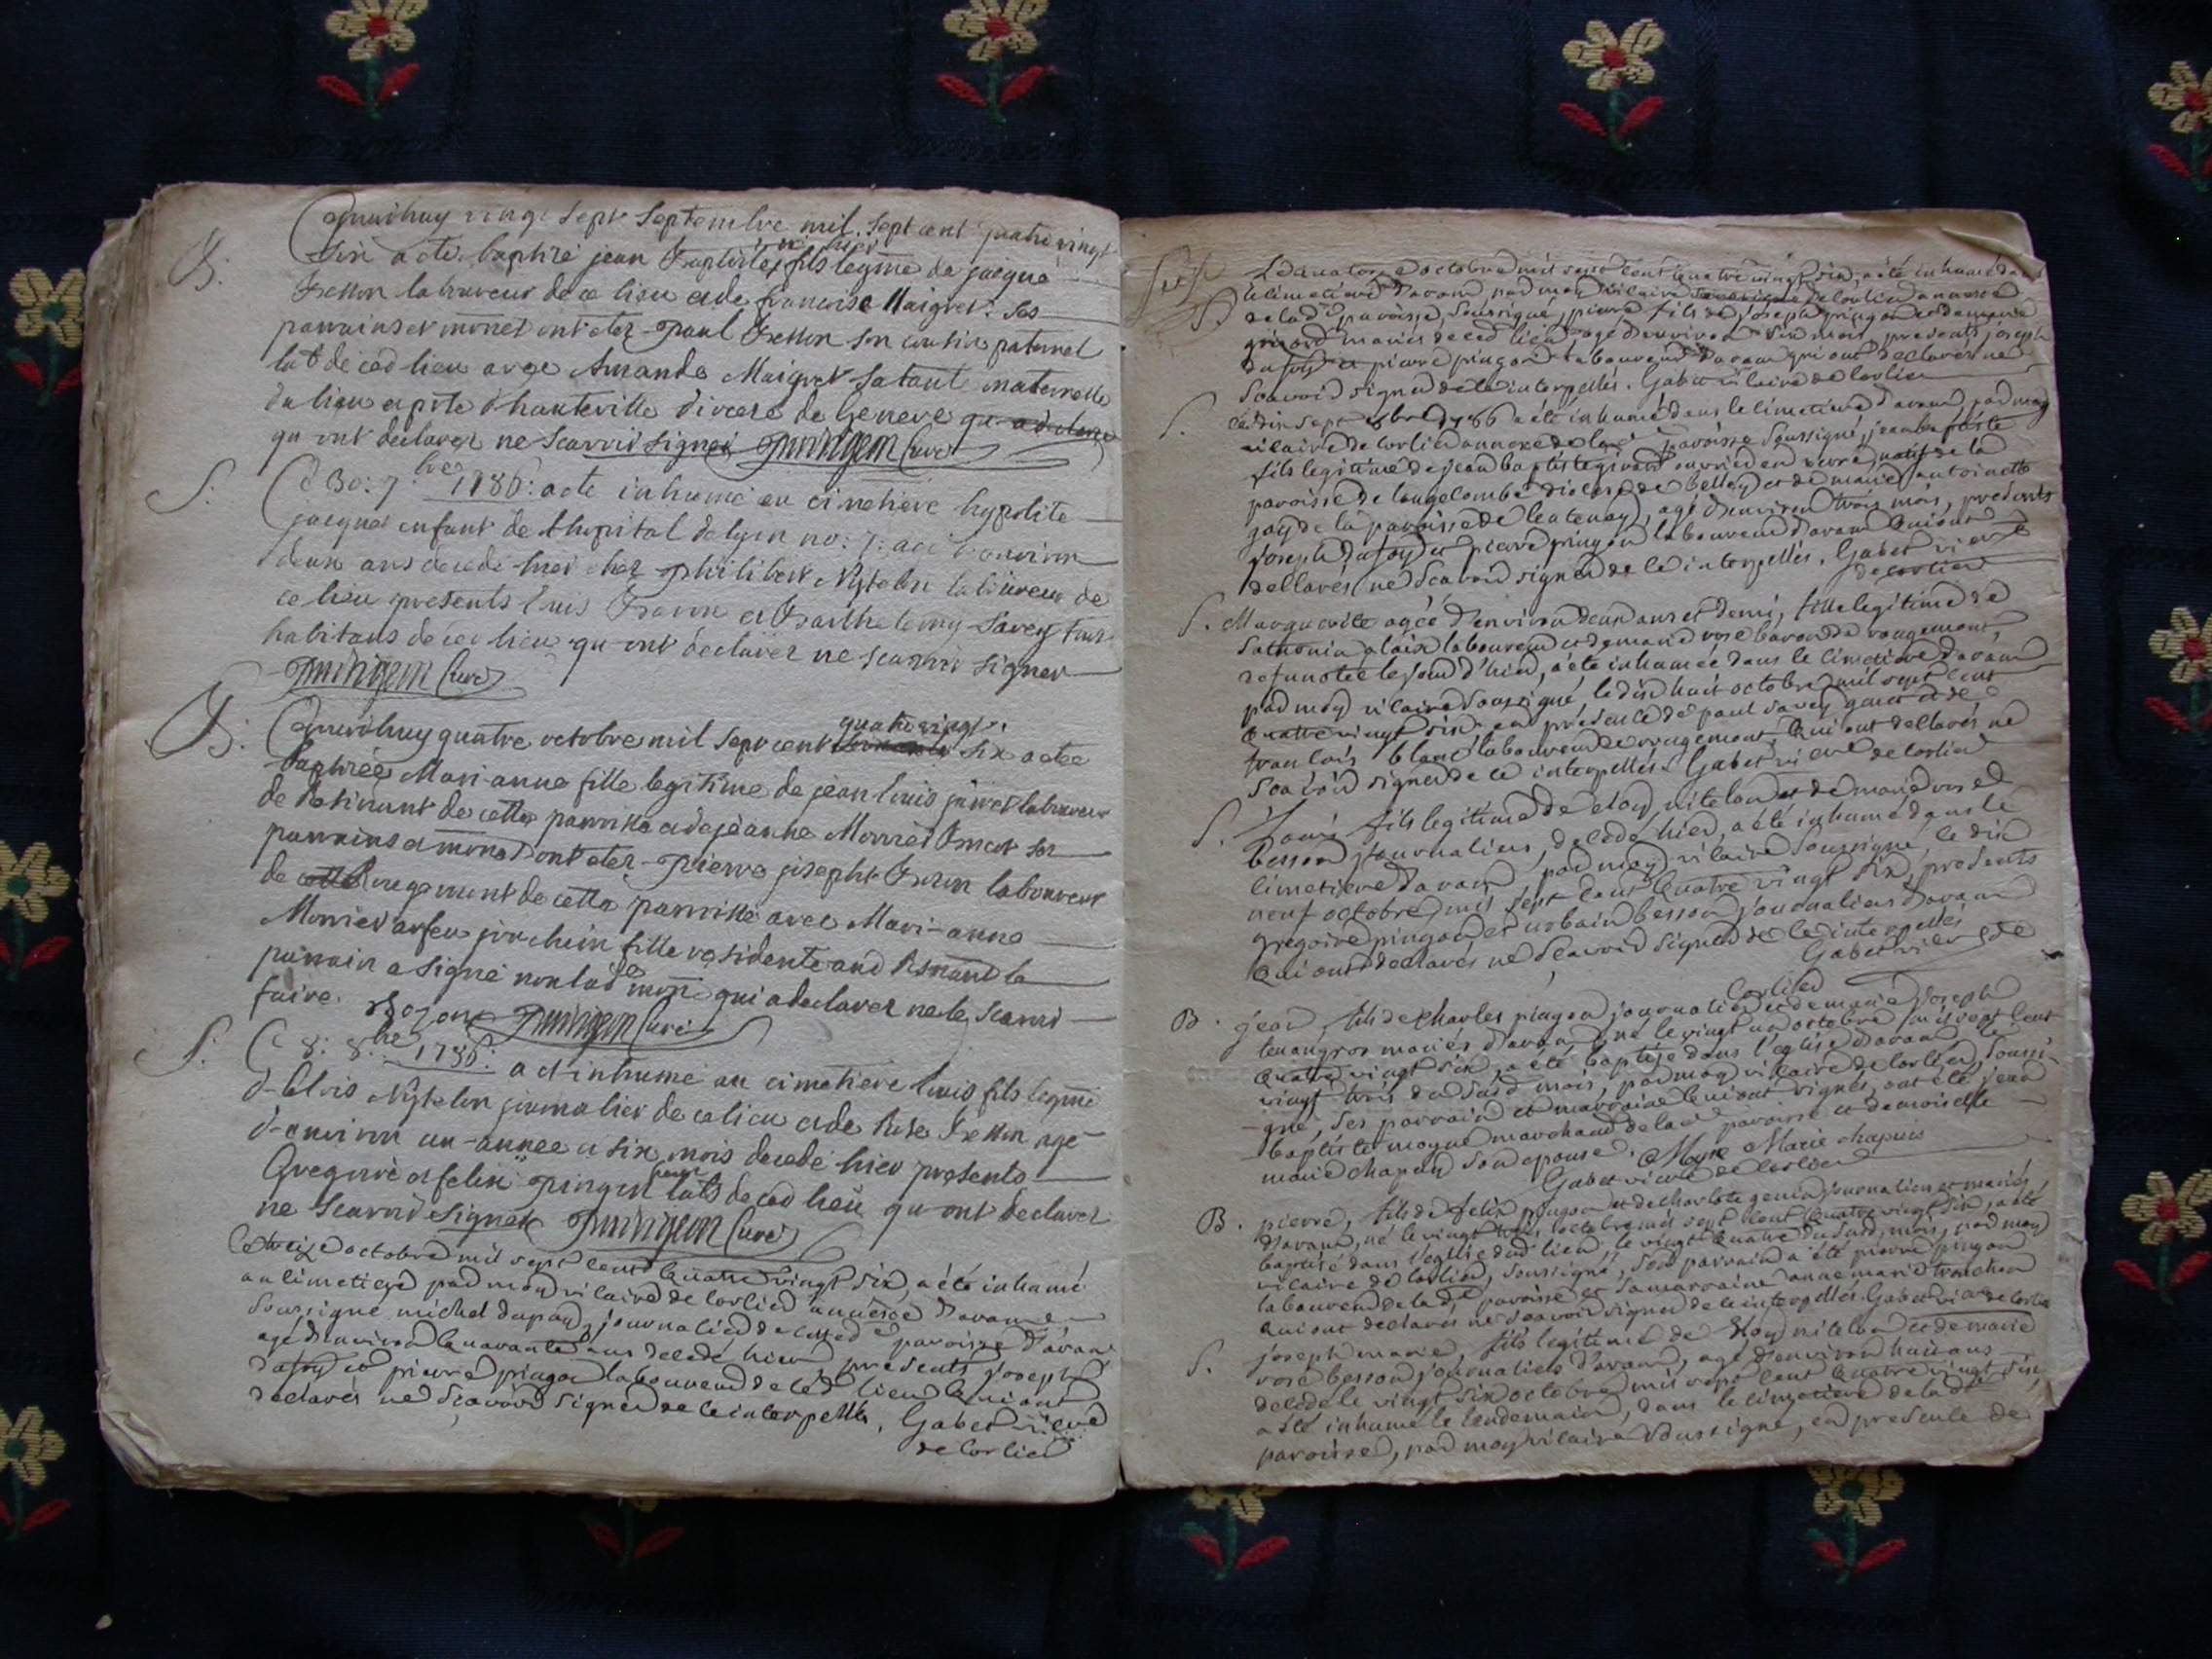 B. aujourdhuy vingt sept septembre mil sept cent quatre vingt
six a eté baptisé jean Baptiste né hier fils legme de jacque
Besson laboureur de ce lieu et de francoise Maigret: ses
parrains et ont eter paul Besson son cousin paternel
labr de ced lieu avec Amande Maigret sa tante maternelle
du lieu et d'hauteville diocese de Geneve
qui ont declarer ne scavoir signer curé
S. Ce 30: 7bre 1786: a eté inhumé au cimetiere hypolite
jacque enfant de l'hopital de lyon no: 7: agé d'environ
deux ans decedé hier chez philibert Nytelon laboureur de
ce lieu presents luis et Barthelemy Savey tous
habitans de ced lieu qui ont declarer ne scavoir signer
curé
B. aujourdhuy quatre octobre mil sept cent quatre vingt six a eté
baptisée Mari-anne fille legitime de jean luis laboureur
de de cette parroisse et de jeanne ses
parrains et ont eter pierre joseph laboureur
de rougemont de cette parroisse avec Mari-anne
fille residente aud la
parrain a signé non lad qui a declarer ne le scavoir
faire. curé
S. Ce 8: 8bre 1786: a eté inhumé au cimetiere luis fils legme
d'Elois Nytelon journalier de ce lieu et de Rose Besson agé
d'environ un-année et six mois decedé hier presents
Gregoire et felix pingon labrs de ced lieu qui ont declarer
ne scavoir signer curé
Le treize octobre mil sept cent quatre vingt six, a été inhumé
au cimetiere par moy vicaire de Corlier annexe d'aranc
soussigné michel dupuy, journalier de lad paroisse d'aranc
agé d'environ quarante ans decedé hier, presents joseph
dufoy et pierre pingon laboureur de ced lieu qui ont
declarés ne scavoir signer de ce interpellés. Gabet vicre
de Corlier
S. Le quatorze octobre mil sept cent quatre vingt six, a été inhumé dans
le cimetiere d'aranc par moy vicaire de Corlier annexe
de lad paroisse, soussigné, pierre fils de joseph pingon et de marie
mariés de ced lieu, agé d'environ six mois, presents joseph
dufoy et pierre pingon laboureur d'aranc qui ont declarés ne
scavoir signer de ce interpellés. Gabet vicaire de Corlier
S. Le dix sept 8bre 1786 a été inhumé dans le cimetiere d'aranc par moy
vicaire de Corlier annexe de lad paroisse soussigné, jean baptiste
fils legitime de jean baptiste girod ouvrier en verre, natif de la
paroisse de longecombe diocese de Belley et de marie antoinette
joly de la paroisse de lentenay, agé d'environ trois mois, presents
joseph dufoy et pierre pingon laboureur d'aranc qui ont
declarés ne scavoir signer de ce interpellés. Gabet vicre
de corlier
S. Marguerite agée d'environ deux ans et demi, fille legitime de
laboureur et de marie rose de rougemont,
le jour d'hier, a été inhumée dans le cimetiere d'aranc
par moy vicaire soussigné, le dix huit octobre mil sept cent
quatre vingt six, en presence de paul savey et de
francois blanc laboureur de rougemont, qui ont declarés ne
scavoir signer de ce interpellés. Gabet vicre de Corlier
S. Louis fils legitime de eloy nitelon et de marie rose
besson journaliers, decedé hier, a été inhumé dans le
cimetiere d'aranc par moy vicaire soussigné, le dix
neuf octobre mil sept cent quatre vingt six, presents
gregoire pingon, et urbain besson journaliers d'aranc
qui ont declarés ne scavoir signer de ce interpellés
Gabet vicre de
Corlier
B. jean, fils de charles pingon journalier et de marie joseph
mariés d'aranc, né le vingt un octobre mil sept cent
quatre vingt six, a été baptisé dans l'eglise d'aranc le
vingt trois du susd mois, par moy vicaire de Corlier, soussi-
gné, ses parrain et marraine qui ont signés, ont été jean
baptiste moyne marchand de lad paroisse et demoiselle
marie chapuy son epouse. Moyne Marie chapuis
Gabet vicre de Corlier
B. pierre, fils de felix pingon et de charlote genin journaliers et mariés
d'aranc, né le vingt octobre mil sept cent quatre vingt six, a été
baptisé dans l'eglise dud lieu, le vingt quatre du susd, mois, par moy
vicaire de Corlier, soussigné, son parrain a été pierre pingon
laboureur de lad paroisse et sa marraine anne marie
qui ont declarés ne scavoir signer de ce interpellés. Gabet vicre de Corlier
S. joseph marie, fils legitime de Eloy nitelon et de marie
rose besson journaliers d'aranc, agé d'environ huit ans
decedé le vingt six octobre mil sept cent quatre vingt six,
a été inhumé le lendemain, dans le cimetiere de lad
paroisse, par moy vicaire soussigné, en presence de